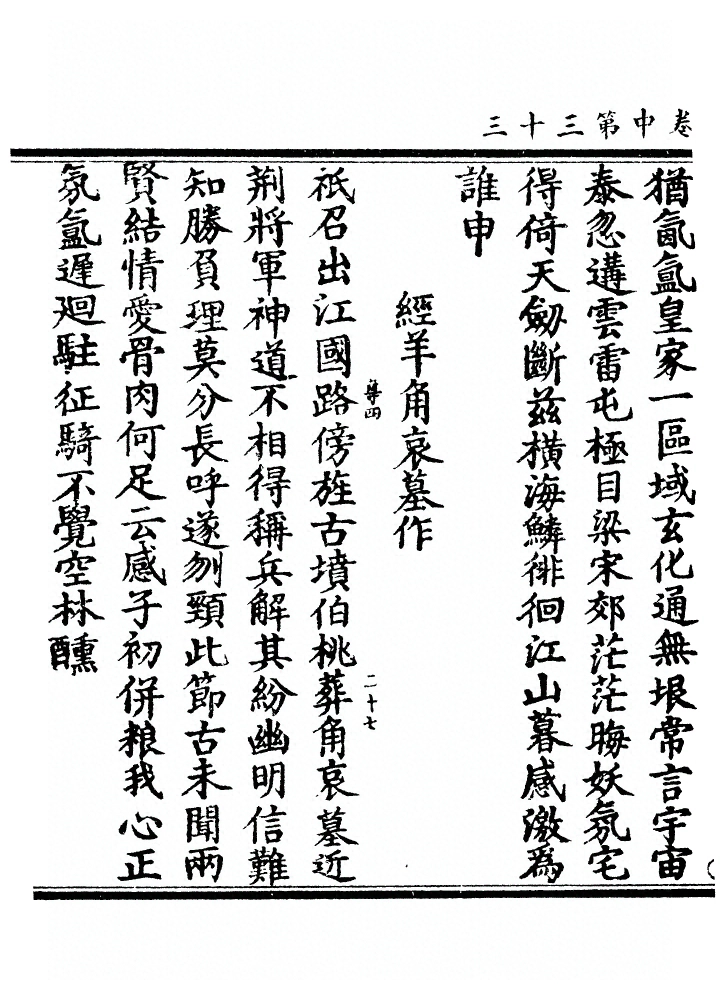 卷中第三十三
猶氤氳皇家一區域玄化通無垠常言宇宙
泰忽遘雲雷屯極目梁宋郊茫茫晦妖氛宅
得倚天劒斷茲橫海鱗徘徊江山暮感激爲
誰申
經羊角哀墓作
祇召出江國路傍旌古墳伯桃葬角哀墓近
荆將軍神道不相得稱兵解其紛幽明信難
知勝負理莫分長呼遂刎頸此節古未聞兩
賢結情愛骨肉何足云感子初併粮我心正
氛氳遲廻駐征騎不覺空林醺
二十七